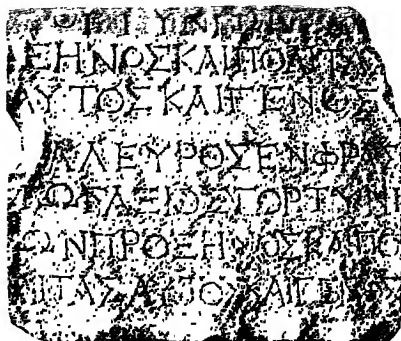 ΞΗΝΟΣΚΑΙΠΟΛΙΤΑΣ
ΑΥΤΟΣΚΑΙΓΕΝΟΣ
ΑΛΕΥΡΟΣΕΝΦΡΑΣ
ΤΩΓΑΞΙΟΣΓΟΡΤΥΝΙ
ΩΝΠΡΟΞΗΝΟΣΚΑΙΠΟ
ΛΙΤΑΣΑΥΤΟΣΚΑΙΓΕΝΟΣ